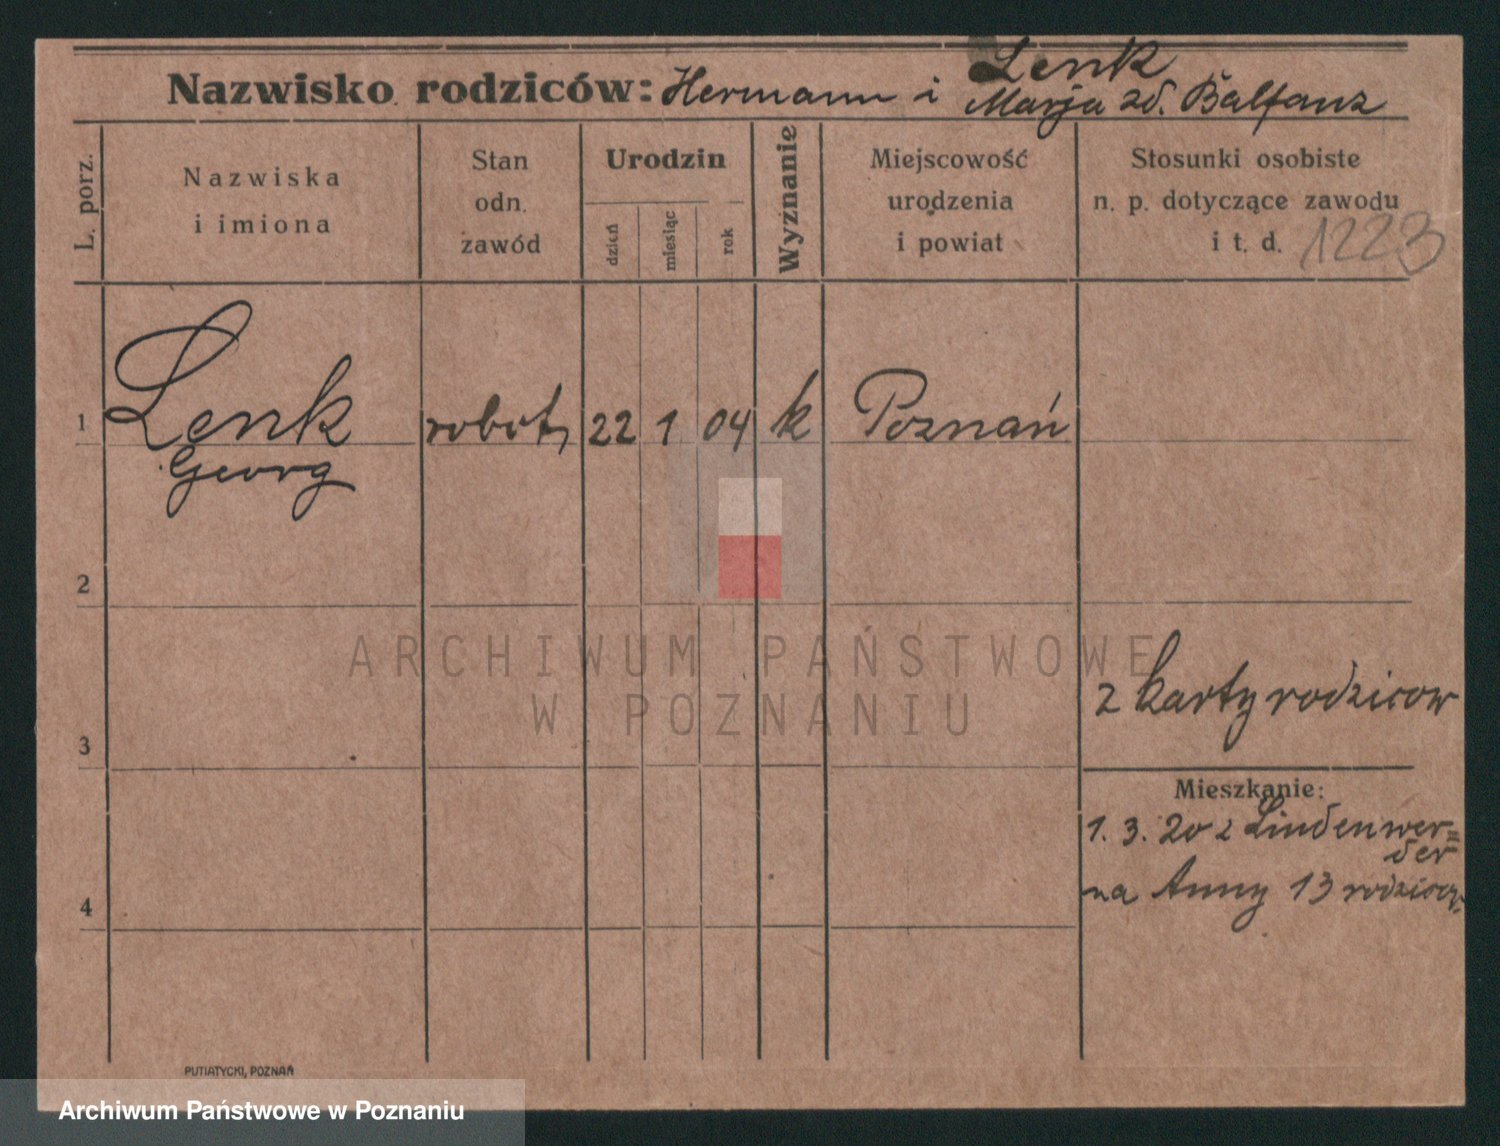 Lenk
Nazwisko rodziców: Hermann i Marja zd. Balfanz
L. porz.
Nazwiska
i imiona
Stan
odn.
zawód
Urodzin
dzień
miesiąc
rok
Wyznanie
Miejscowość
urodzenia
i powiat
Stosunki osobiste
n. p. dotyczące zawodu
i t. d. 1223
1 Lenk robot, 22 1 04 k Poznań
Georg
2
ARCHIWUM PAŃSTWOWE
W POZNANIU
z karty rodzicow
3
Mieszkanie:
1. 3. 20 z Lindenwer=
der
na Anny 13 rodzicow
4
PUTIATYCKI, POZNAŃ
Archiwum Państwowe w Poznaniu